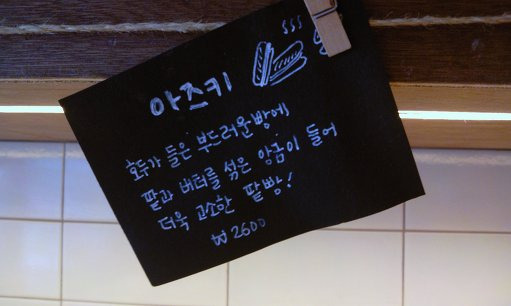 아즈키
호두가 들은 부드러운빵에
팥과 버터를 섞은 앙금이 들어
더욱 고소한 팥빵!
₩2600